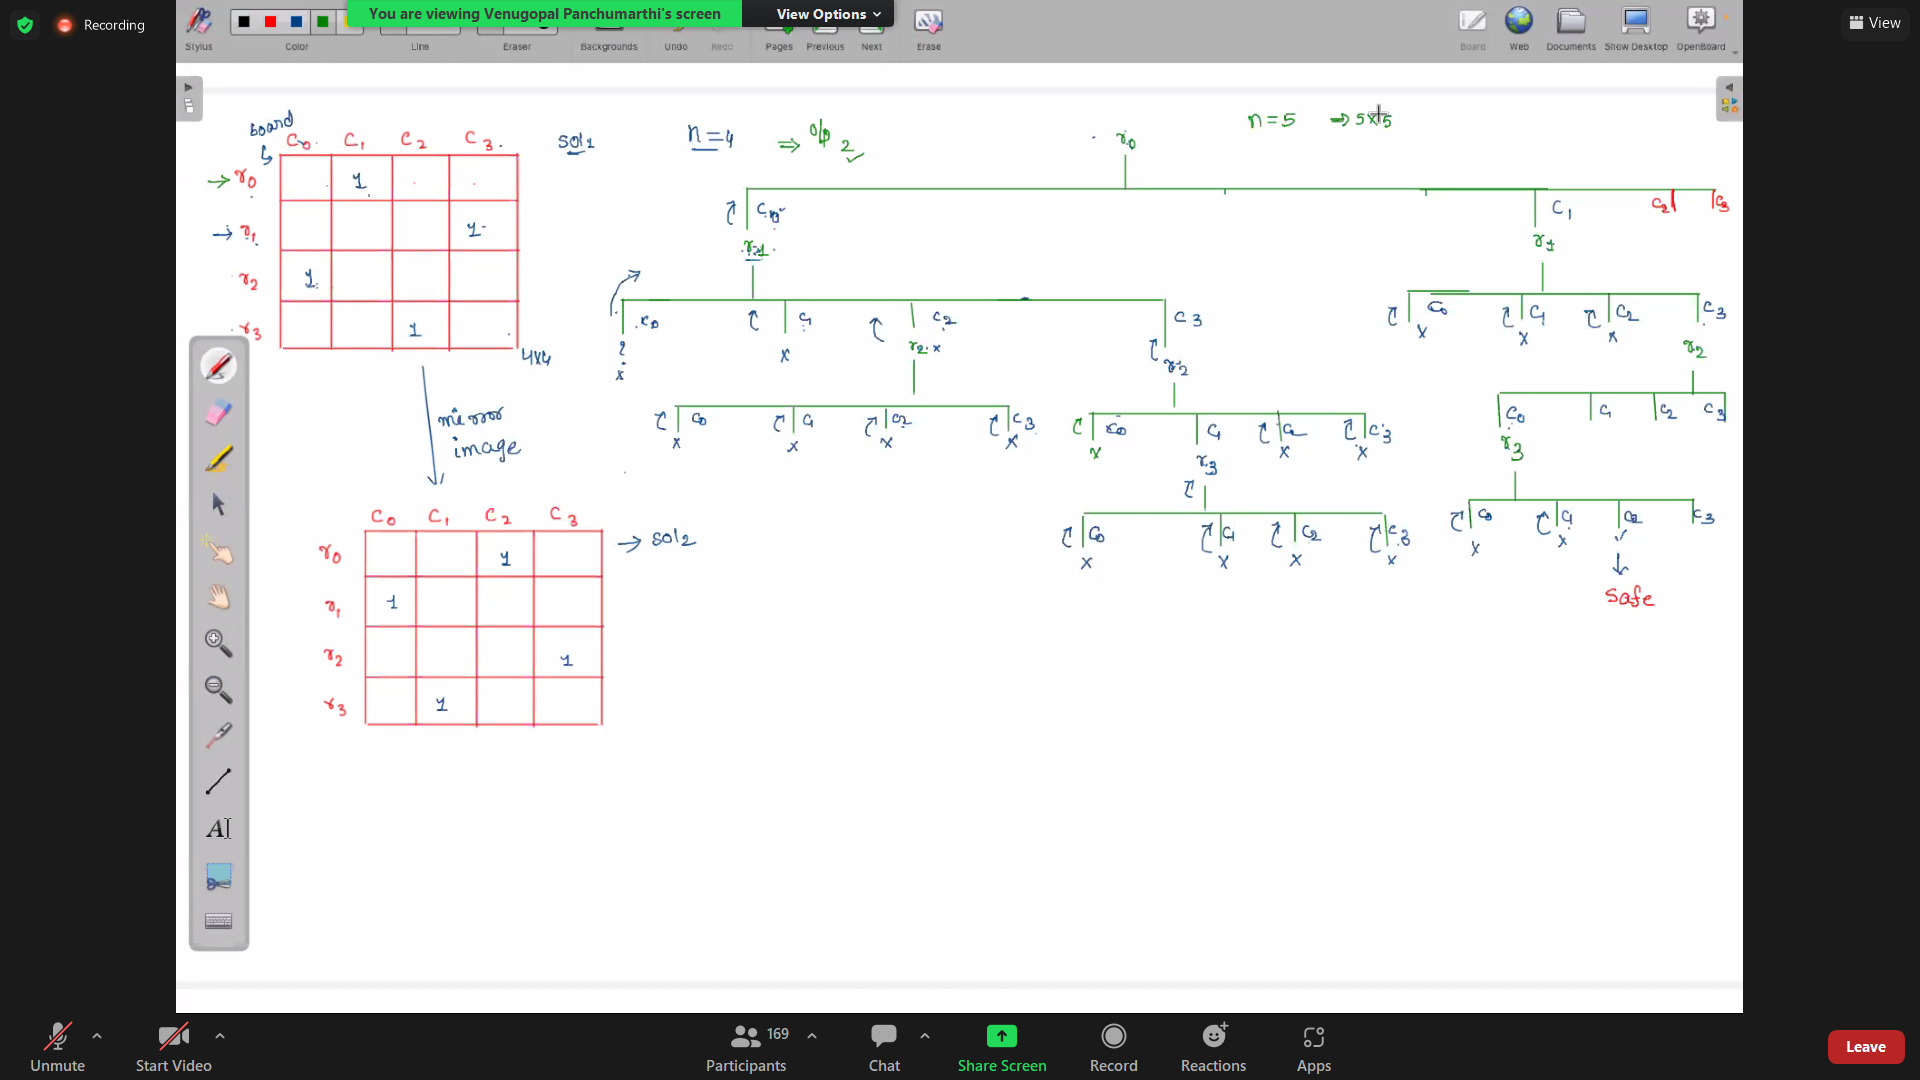 Recording
You are viewing Venugopal Panchumarthi's screen
View Options
View
Stylus
Color
Line
Eraser
Backgrounds
Undo
Redo
Pages
Previous
Next
Erase
Board
Web
Documents
Show Desktop
OpenBoard
board
C0 C1 C2 C3
sol1
n=4 ⇒ o/p 2 ✓
r0
n=5 → 5x5
→ r0 1
→ r1 1
r2 1
r3 1
4x4
mirror
image
C0 C1 C2 C3
r0 1
r1 1
r2 1
r3 1
→ sol2
C0 C1 C2 C3
r1 r1
C0 C1 C2 C3
x x x
r2 r2
C0 C1 C2 C3
x x x
r2
C0 C1 C2 C3
x x x x
C0 C1 C2 C3
x x x
r3
C0 C1 C2 C3
r3
C0 C1 C2 C3
x x x x
C0 C1 C2 C3
x x ✓
Safe
A
Unmute
Start Video
169
Participants
Chat
Share Screen
Record
Reactions
Apps
Leave